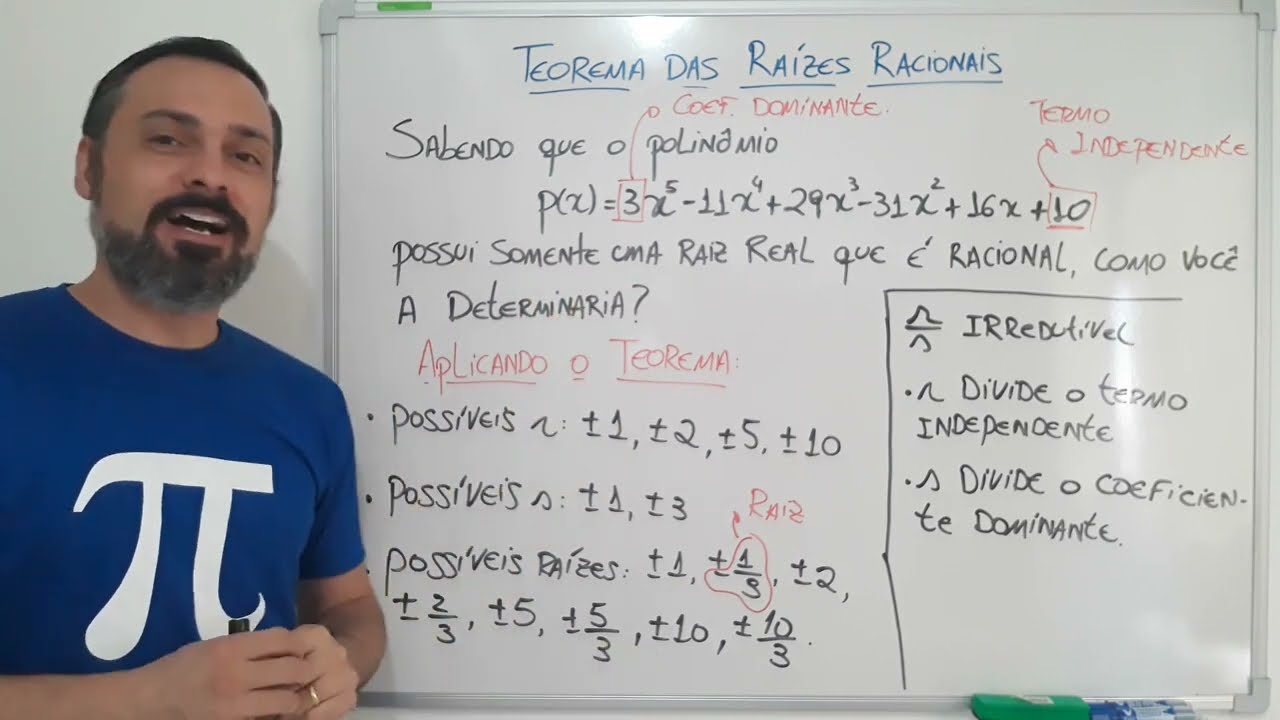 TEOREMA DAS RAÍZES RACIONAIS
COEF. DOMINANTE.
TERMO
INDEPENDENTE
SABENDO QUE O POLINÔMIO
p(x)=3x⁵-11x⁴+29x³-31x²+16x+10
POSSUI SOMENTE UMA RAIZ REAL QUE É RACIONAL, COMO VOCÊ
A DETERMINARIA?
APLICANDO O TEOREMA:
• POSSÍVEIS r: ±1, ±2, ±5, ±10
• POSSÍVEIS s: ±1, ±3
RAIZ
• POSSÍVEIS RAÍZES: ±1, ±1/3, ±2,
±2/3, ±5, ±5/3, ±10, ±10/3.
r/s IRREDUTÍVEL
• r DIVIDE O TERMO
INDEPENDENTE
• s DIVIDE O COEFICIEN-
TE DOMINANTE.
π